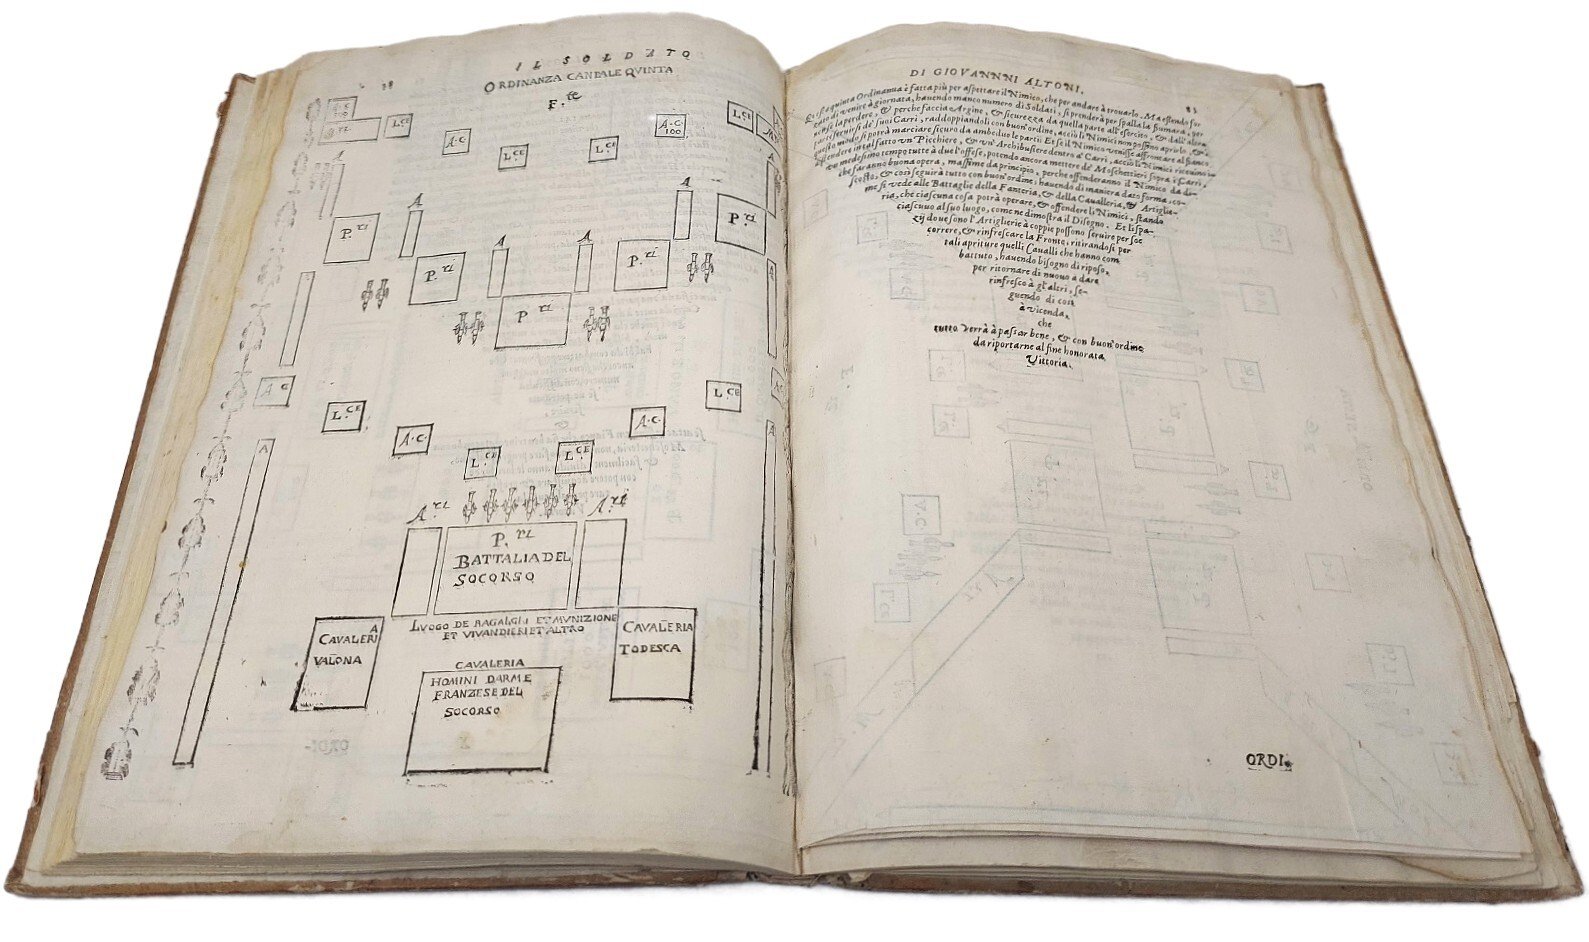 IL SOLDATO
ORDINANZA CANPALE QVINTA
F.te
A.C
100
L.CE
A.C
L.CE
L.CE
A.C
100
L.CE
A
A
A
A
P.ri
P.ri
A
A
P.ri
P.ri
P.ri
A C
L.CE
A.C.
L.CE
L.CE
A.C.
L.CE
A
A
A.ri
A.ri
P.ri
BATTALIA DEL
SOCORSO
LVOGO DE BAGALGLI ET MVNIZIONE
ET VIVANDIERI ET ALTRO
CAVALERIA
VALONA
CAVALERIA
TODESCA
CAVALERIA
HOMINI DARME
FRANZESE DEL
SOCORSO
DI GIOVANNNI ALTONI.
Questa quinta Ordinanza è fatta più per aspettare il Nimico, che per andare à trouarlo. Ma essendo for
zato di venire à giornata, hauendo manco numero di Soldati, si prenderà per spalla la fiumara, per
non se la perdere, & perche faccia Argine, & sicurezza da quella parte all'esercito, & dall'altra
parte seruirsi de' suoi Carri, raddoppiandoli con buon'ordine, acciò li Nimici non possino aprirlo, & in
questo modo si potrà marciare sicuro da ambedue le parti: Et se il Nimico venisse affrontare al fianco
difendere in tal fatto vn' Picchiere, & vn' Archibusiere dentro a' Carri, acciò li Nimici riceuino in
vn medesimo tempo tutte à due l'offese, potendo ancora mettere de' Moschettieri sopra i Carri,
che faranno buona opera, massime da principio, perche offenderanno il Nimico da di-
scosto, & così seguirà tutto con buon'ordine: hauendo di maniera dato forma, co-
me si vede alle Battaglie della Fanteria, & della Cavalleria, & Artiglie-
ria, che ciascuna cosa potrà operare, & offendere li Nimici, stando
ciascuno al suo luogo, come ne dimostra il Disegno. Et li spa-
zij doue sono l'Artiglierie à coppie possono seruire per soc
correre, & rinfrescare la Fronte, ritirandosi per
tali apriture quelli Caualli che hanno com
battuto, hauendo bisogno di riposo,
per ritornare di nuouo a dare
rinfresco à gl'altri, se-
guendo di così
à vicenda,
che
tutto verrà à passar bene, & con buon'ordine
da riportarne al fine honorata
Vittoria.
ORDI-